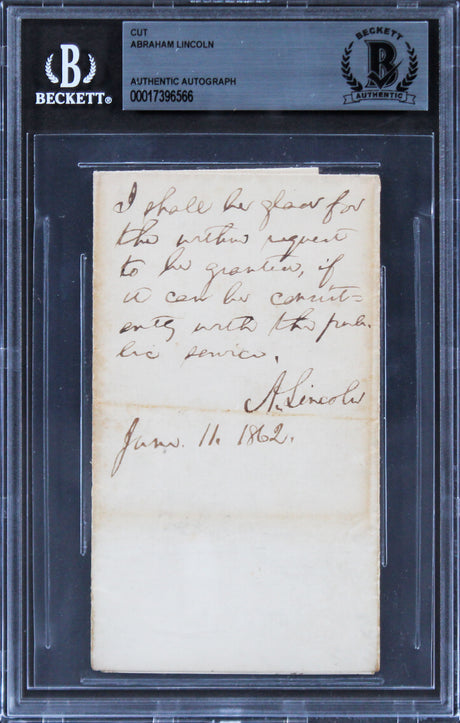 CUT
ABRAHAM LINCOLN
AUTHENTIC AUTOGRAPH
00017396566
B
BECKETT®
BECKETT
B
AUTHENTIC
I shall be glad for
the within request
to be granted, if
it can be consist-
ently with the pub-
lic service.
A. Lincoln
June 11. 1862.